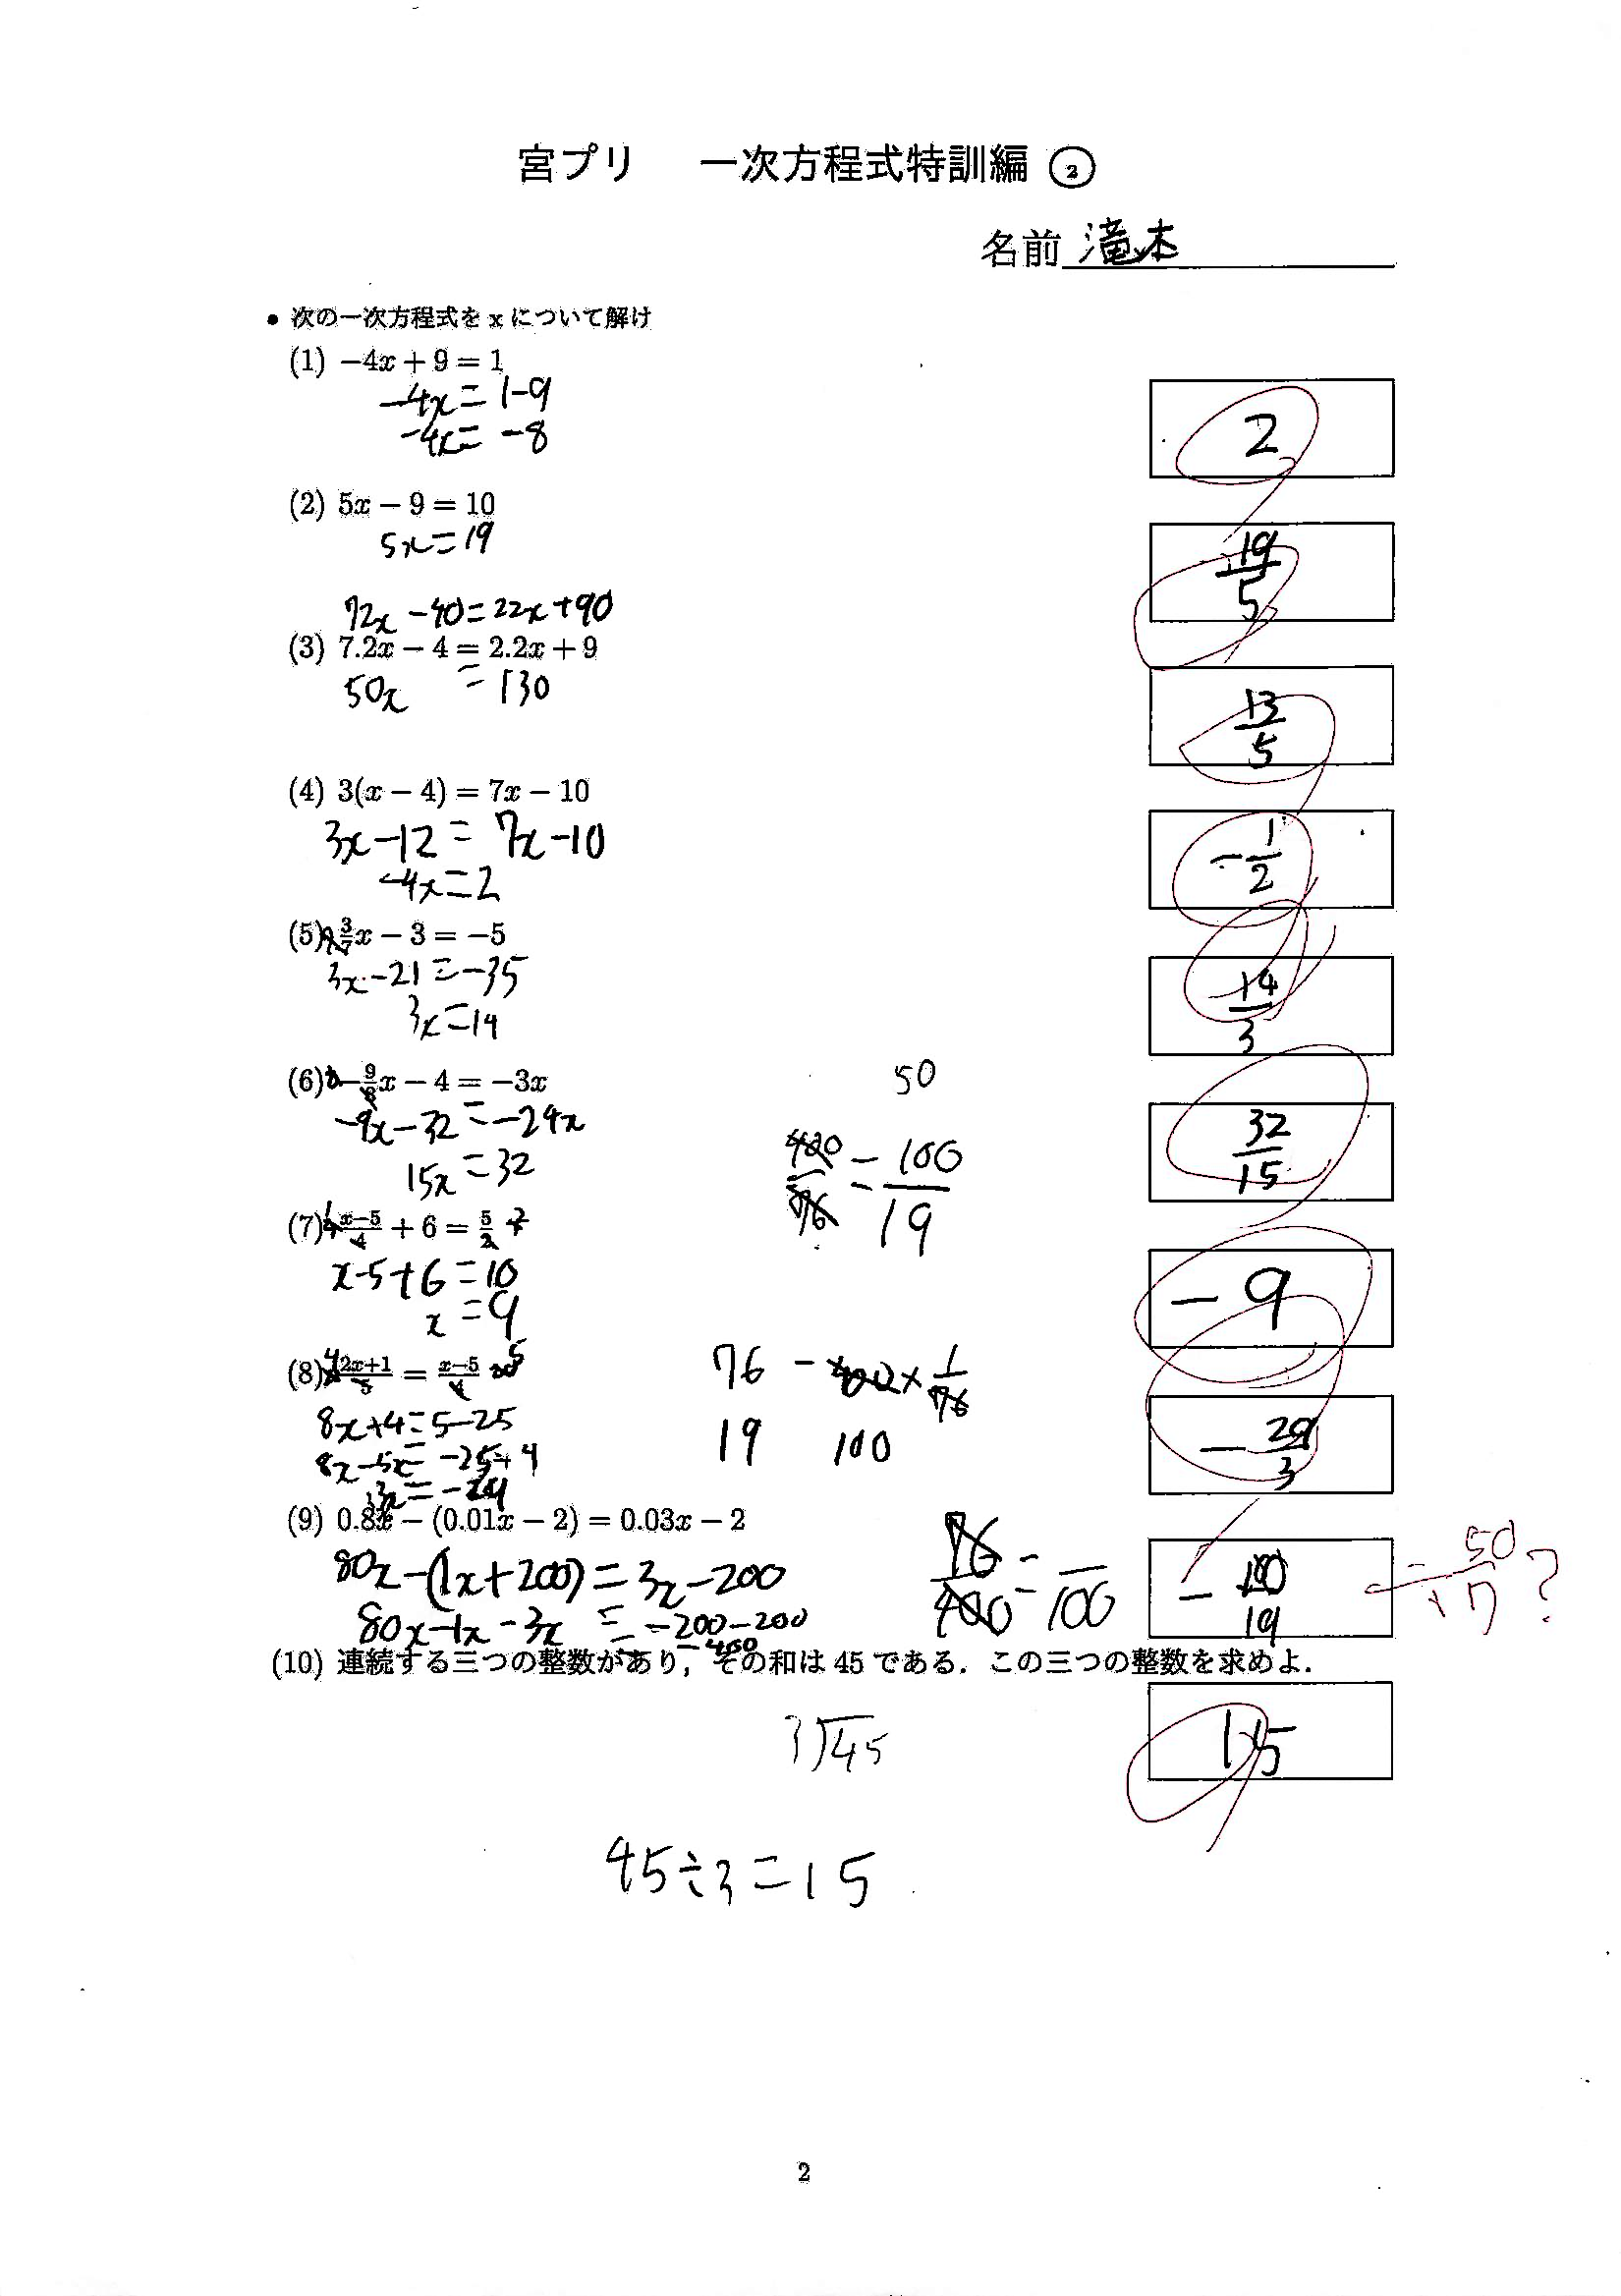 宮プリ 一次方程式特訓編 ②
名前 滝本
• 次の一次方程式を x について解け
(1) −4x + 9 = 1
−4x = 1−9
−4x = −8
2
(2) 5x − 9 = 10
5x = 19
19/5
72x − 40 = 22x + 90
(3) 7.2x − 4 = 2.2x + 9
50x = 130
13/5
(4) 3(x − 4) = 7x − 10
3x − 12 = 7x − 10
−4x = 2
−1/2
(5) 3/7x − 3 = −5
3x − 21 = −35
3x = 14
14/3
(6) −9/8x − 4 = −3x
−9x − 32 = −24x
15x = 32
32/15
50
400/76 = 100/19
(7) x−5/4 + 6 = 5/2
x − 5 + 6 = 10
x = 9
− 9
(8) 2x+1/5 = x−5/4
4 5
8x + 4 = 5 − 25
8x − 5x = −25 + 4
3x = −29
76 − 400 × 1/76
19 100
− 29/3
(9) 0.8x − (0.01x − 2) = 0.03x − 2
80x − (1x + 200) = 3x − 200
80x − 1x − 3x = −200 − 200
−400
76/400 = /100
− 100/19
− 50/17 ?
(10) 連続する三つの整数があり，その和は 45 である．この三つの整数を求めよ．
3)45
15
45 ÷ 3 = 15
2